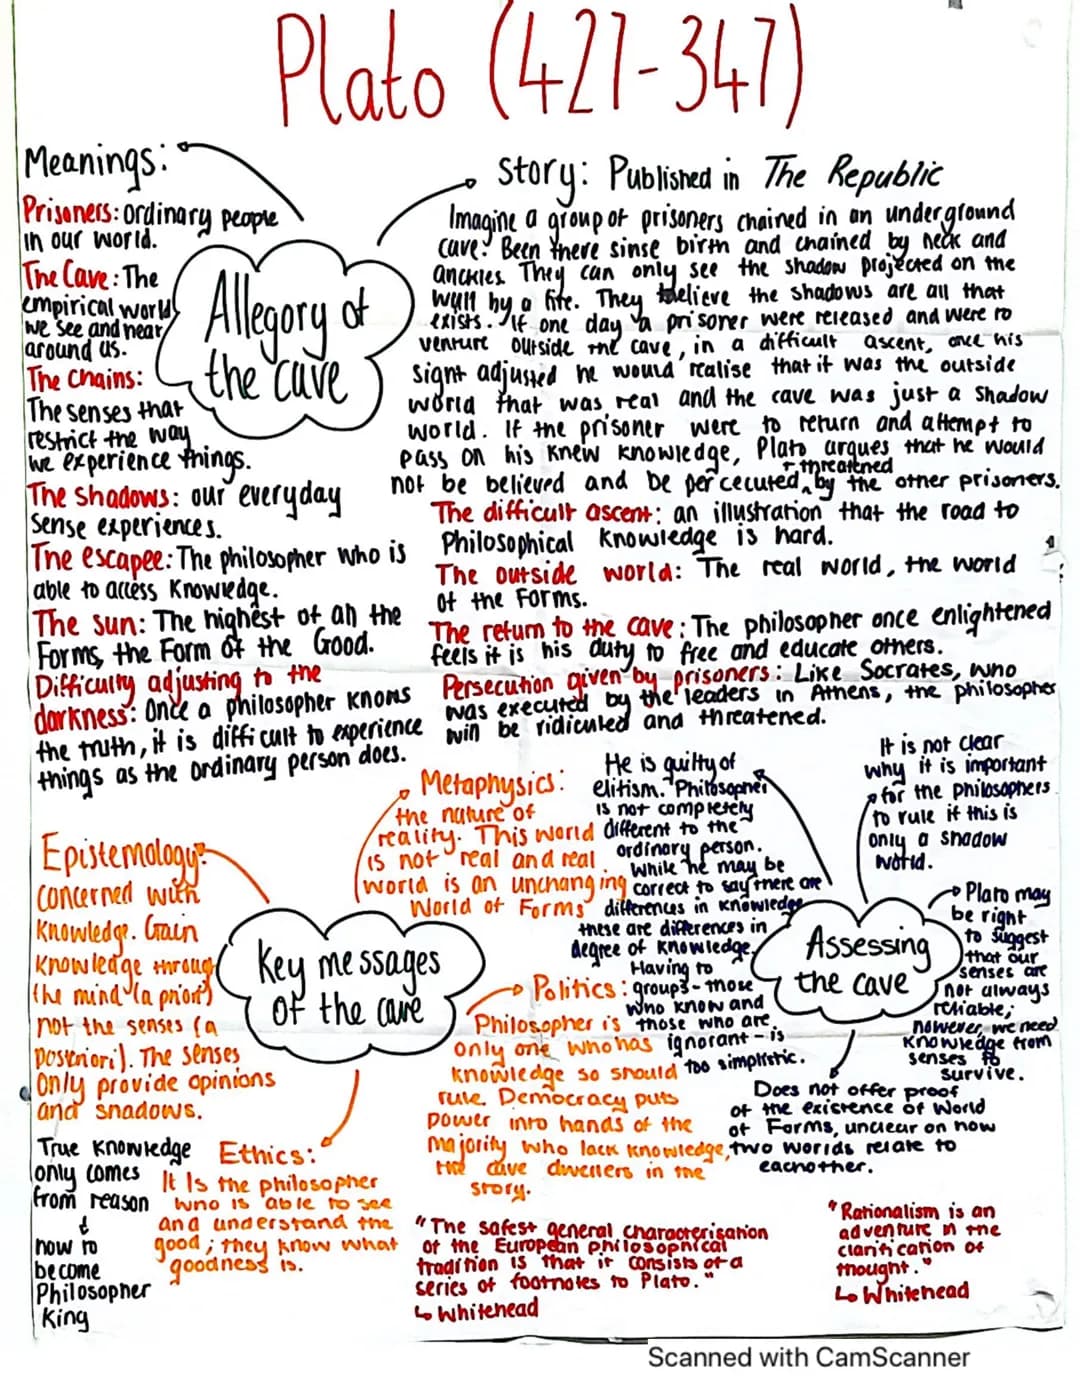 Plato (427-347)
Meanings:
Prisoners: ordinary people
in our world.
The Cave: The
empirical world
we see and near
around us.
The Chains:
The senses that
restrict the way
we experience things.
The shadows: our everyday
sense experiences.
The escapee: The philosopher who is
able to access knowledge.
The sun: The highest of all the
Forms, the Form of the Good.
Difficulty adjusting to the
darkness: Once a philosopher knows
the truth, it is difficult to experience
things as the ordinary person does.
Allegory of
the cave
Story: Published in The Republic
Imagine a group of prisoners chained in an underground
cave. Been there sinse birth and chained by neck and
anckles. They can only see the shadow projected on the
wall by a fire. They believe the shadows are all that
exists. If one day a prisoner were released and were to
venture outside the cave, in a difficult ascent, once his
sight adjusted he would realise that it was the outside
world that was real and the cave was just a shadow
world. If the prisoner were to return and attempt to
pass on his knew knowledge, Plato argues that he would
+ threatened
not be believed and be percecuted by the other prisoners.
The difficult ascent: an illustration that the road to
Philosophical knowledge is hard.
The outside world: The real world, the world
of the Forms.
The return to the cave: The philosopher once enlightened
feels it is his duty to free and educate others.
Persecution given by prisoners: Like Socrates, who
was executed by the leaders in Athens, the philosopher
will be ridiculed and threatened.
Key messages
of the cave
Epistemology:
concerned with
knowledge. Gain
knowledge through
the mind (a priori)
not the senses (a
posteriori). The senses
only provide opinions
and shadows.
True knowledge
only comes
from reason
+
how to
become
Philosopher
King
Ethics:
It Is the philosopher
who is able to see
and understand the
good; they know what
goodness is.
Metaphysics:
the nature of
reality. This world
is not real and real
world is an unchanging
World of Forms
Politics:
Philosopher is
only one who has
knowledge so should
rule. Democracy puts
power into hands of the
majority who lack knowledge,
the cave dwellers in the
story.
Assessing
the cave
He is guilty of
elitism. Philosopher
is not completely
different to the
ordinary person.
While he may be
correct to say there are
differences in knowledge
these are differences in
degree of knowledge.
Having to
groups - those
who know and
those who are
ignorant - is
too simplistic.
It is not clear
why it is important
for the philosophers
to rule if this is
only a shadow
world.
Plato may
be right
to suggest
that our
senses are
not always
reliable;
however, we need
knowledge from
senses to
survive.
Does not offer proof
of the existence of World
of Forms, unclear on how
two worlds relate to
eachother.
"The safest general characterisation
of the European philosophical
tradition is that it consists of a
series of footnotes to Plato."
↳ Whitehead
"Rationalism is an
adventure in the
clarification of
thought."
↳ Whitehead
Scanned with CamScanner